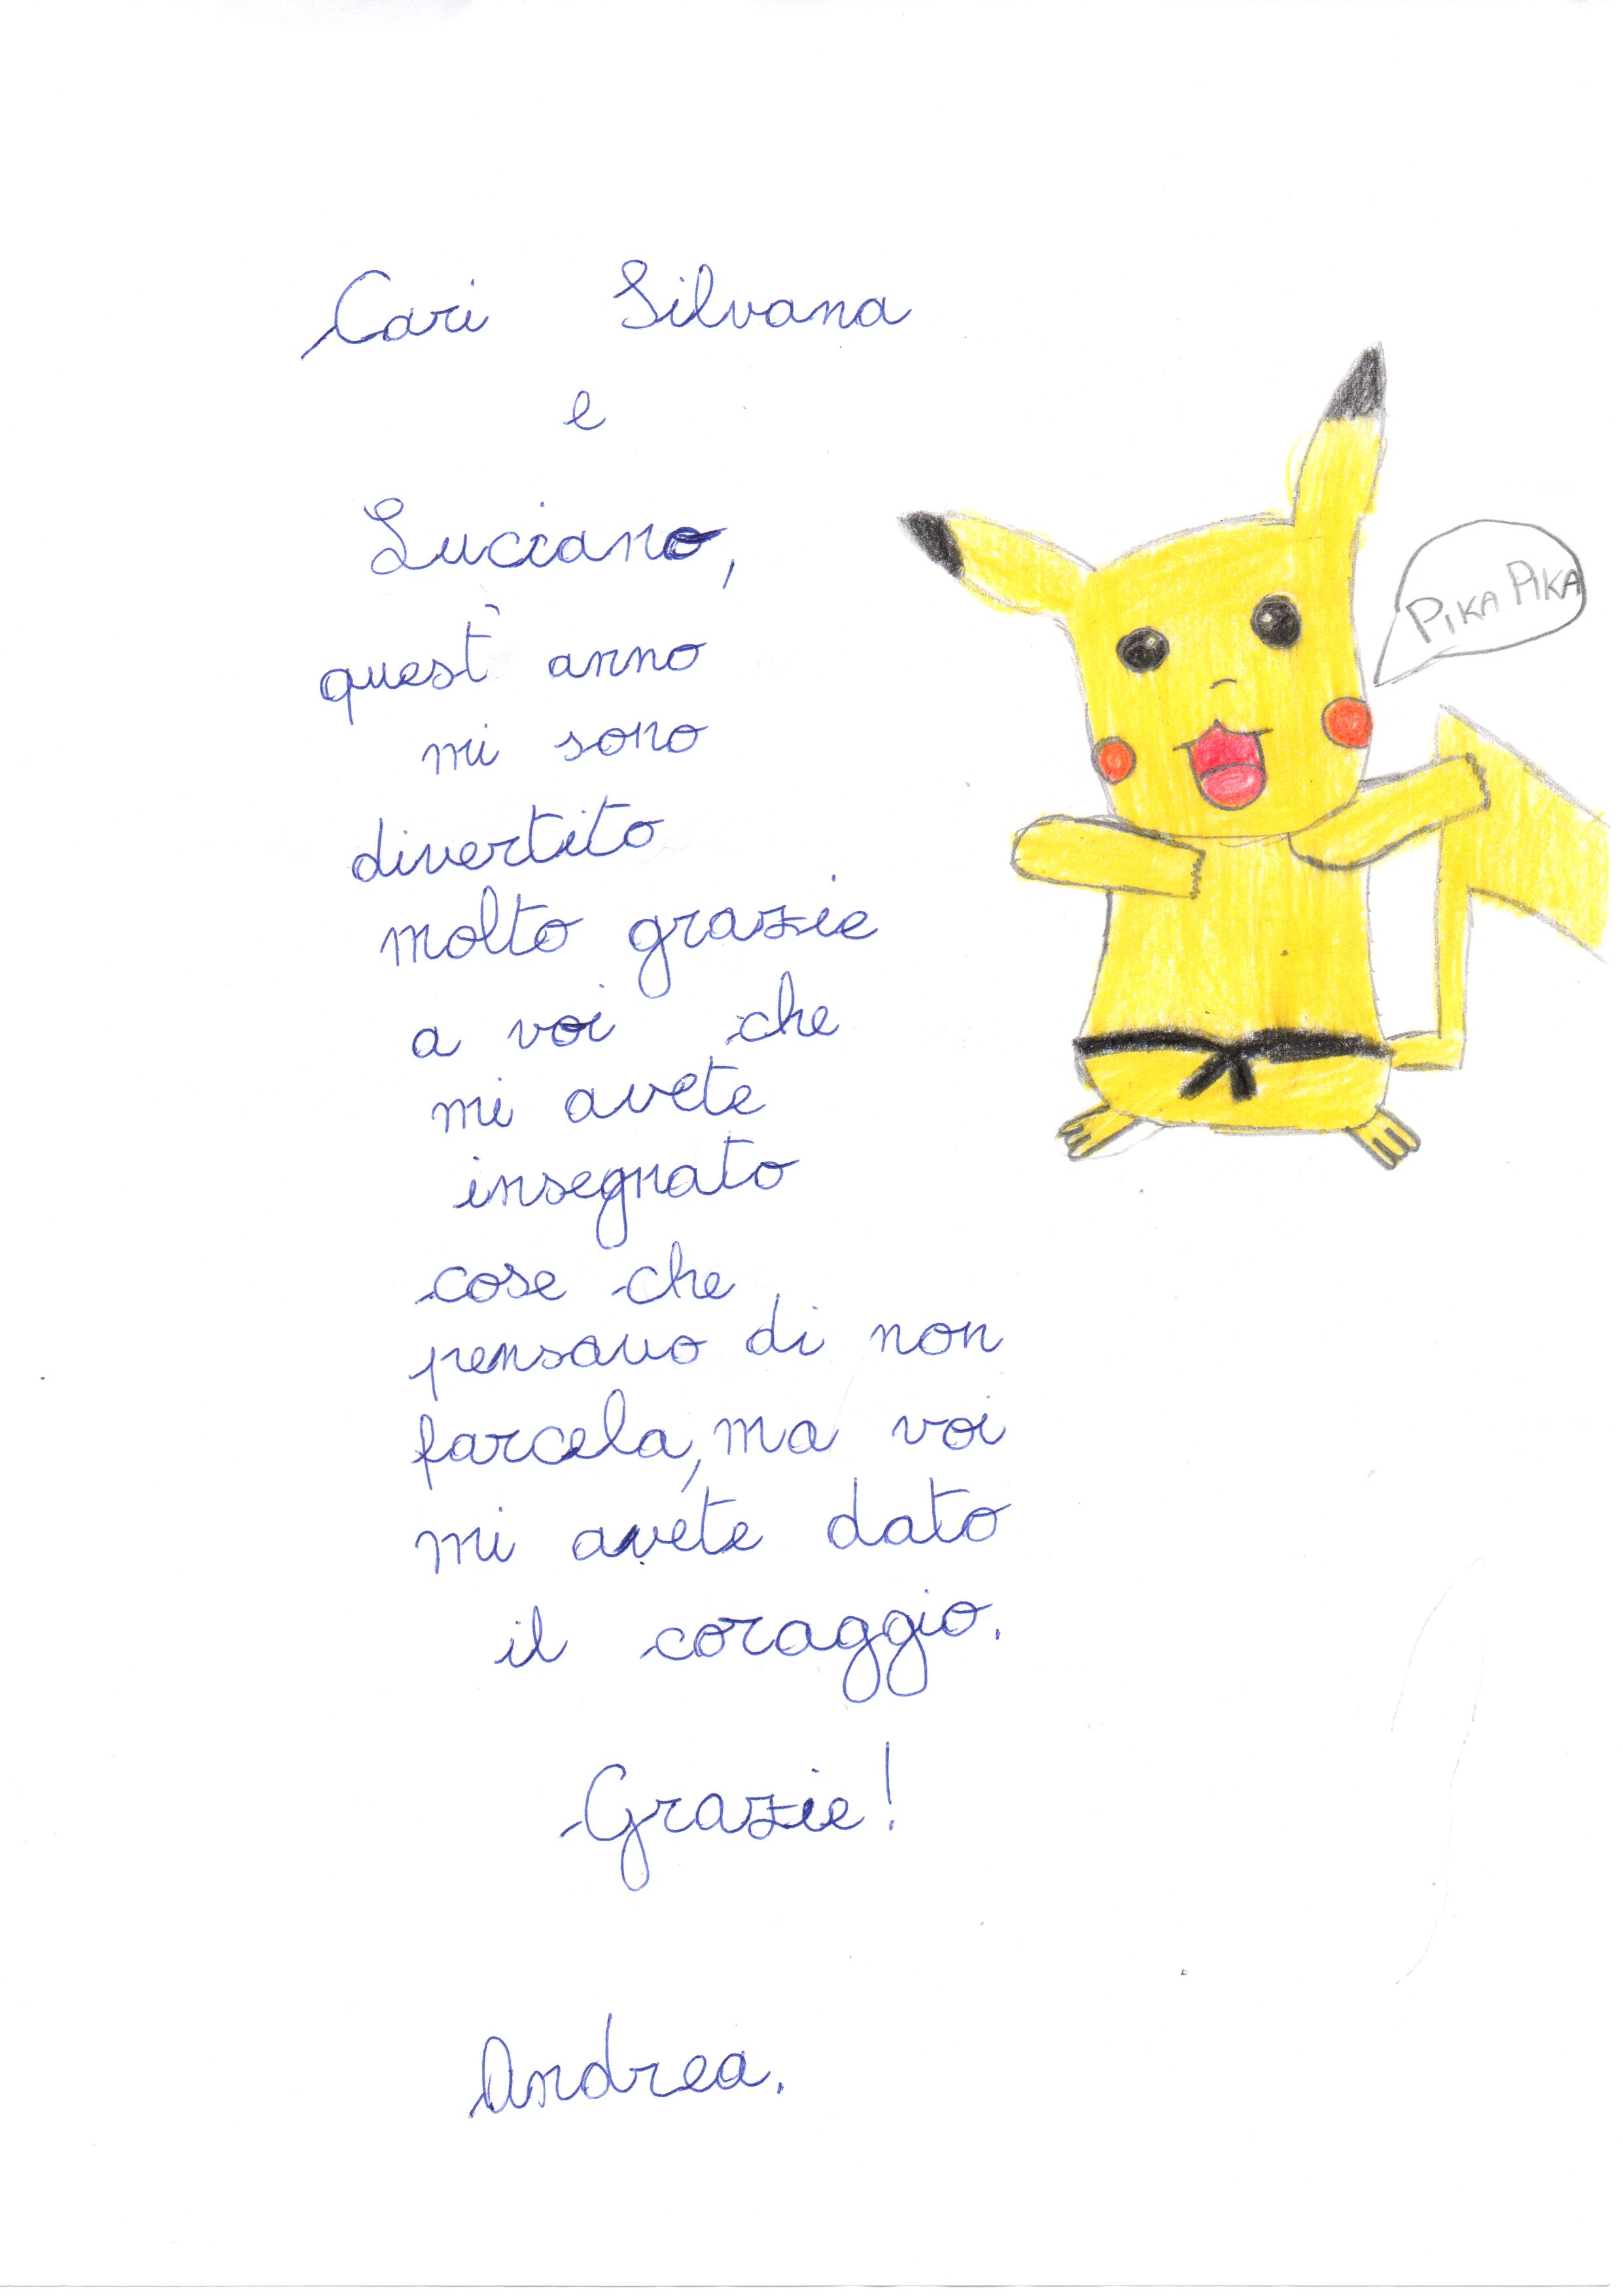 Cari Silvana
e
Luciano,
quest' anno
mi sono
divertito
molto grazie
a voi che
mi avete
insegnato
cose che
pensavo di non
farcela, ma voi
mi avete dato
il coraggio.
Grazie!
Andrea.
PIKA PIKA